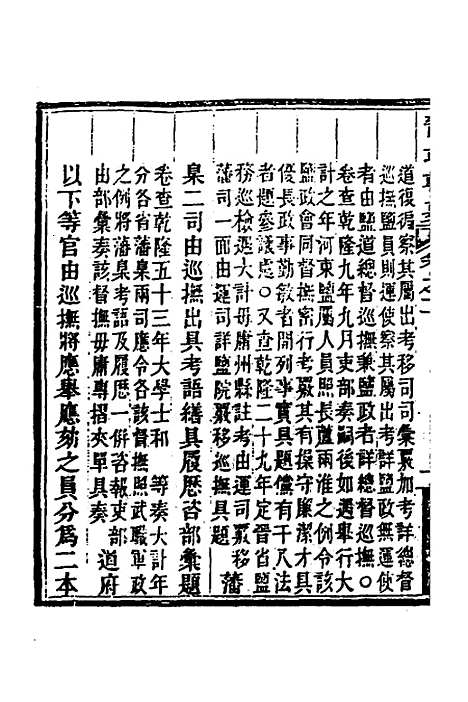 道復循察其屬出考移司司彙覈加考詳總督
巡撫鹽員則運使察其屬出考詳鹽政無運使
者由鹽道總督巡撫兼鹽政者詳總督巡撫〇
卷查乾隆九年九月吏部奏嗣後如遇舉行大
計之年河東鹽屬人員照長蘆兩淮之例令該
鹽政會同督撫密行考覈其有操守廉潔才具
優長政事勤敏者開列事實具題儻有干八法
者題參議處〇又查乾隆二十九年定晉省鹽
務巡檢選大計毋肅州縣註考由運司覈移
藩司一面由運司詳鹽院覈移巡撫具題 藩
臬二司由巡撫出具考語繕具履歷咨部彙題
卷查乾隆五十三年大學士和 等奏大計年
分各省藩臬兩司應令各該督撫照武職軍政
之例將藩臬考語及履歷一併咨報吏部
由部彙奏該督撫毋庸專摺夾單具奏 道府
以下等官由巡撫將應舉應劾之員分爲二本